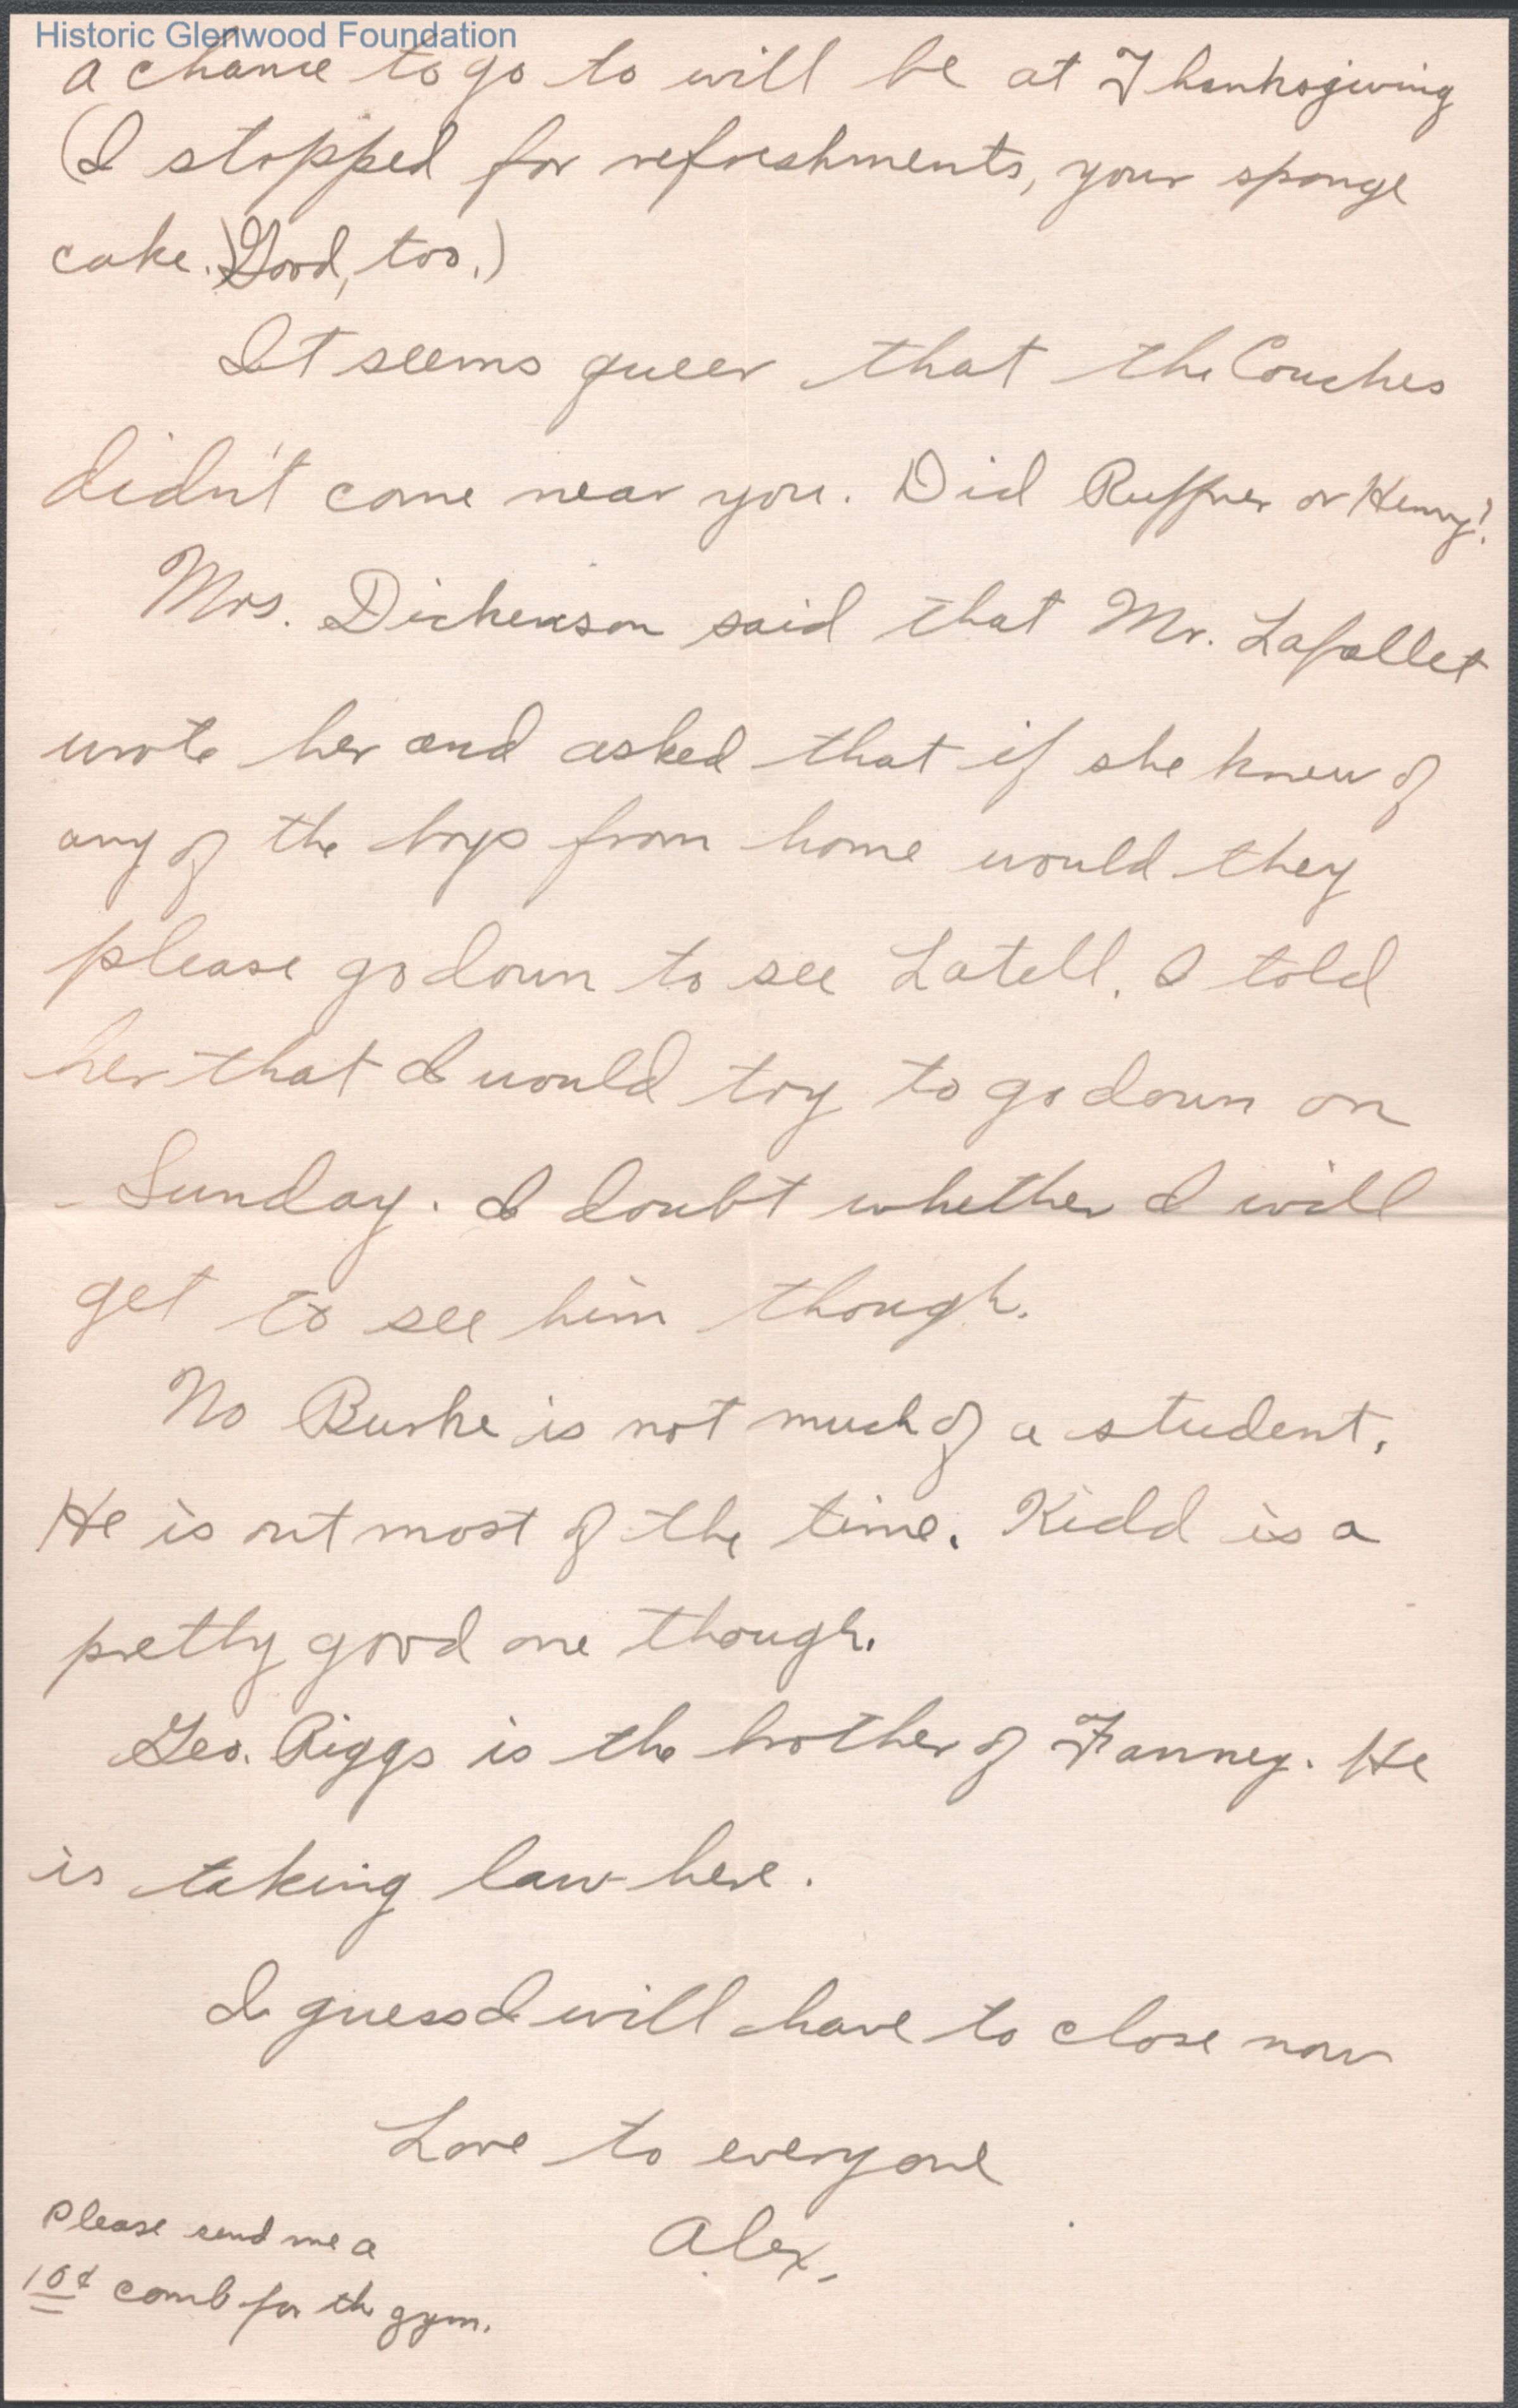 Historic Glenwood Foundation
a chance to go to will be at Thanksgiving
(I stopped for refreshments, your sponge
cake.) Good, too.)
It seems queer that the Couches
didn't come near you. Did Ruffner or Henry?
Mrs. Dickenson said that Mr. Lafollet
wrote her and asked that if she knew of
any of the boys from home would they
please go down to see Latell. I told
her that I would try to go down on
Sunday. I doubt whether I will
get to see him though.
No Burke is not much of a student.
He is out most of the time. Kidd is a
pretty good one though.
Geo. Riggs is the brother of Fanney. He
is taking law here.
I guess I will have to close now
Love to everyone
Alex.
Please send me a
10¢ comb for the gym.